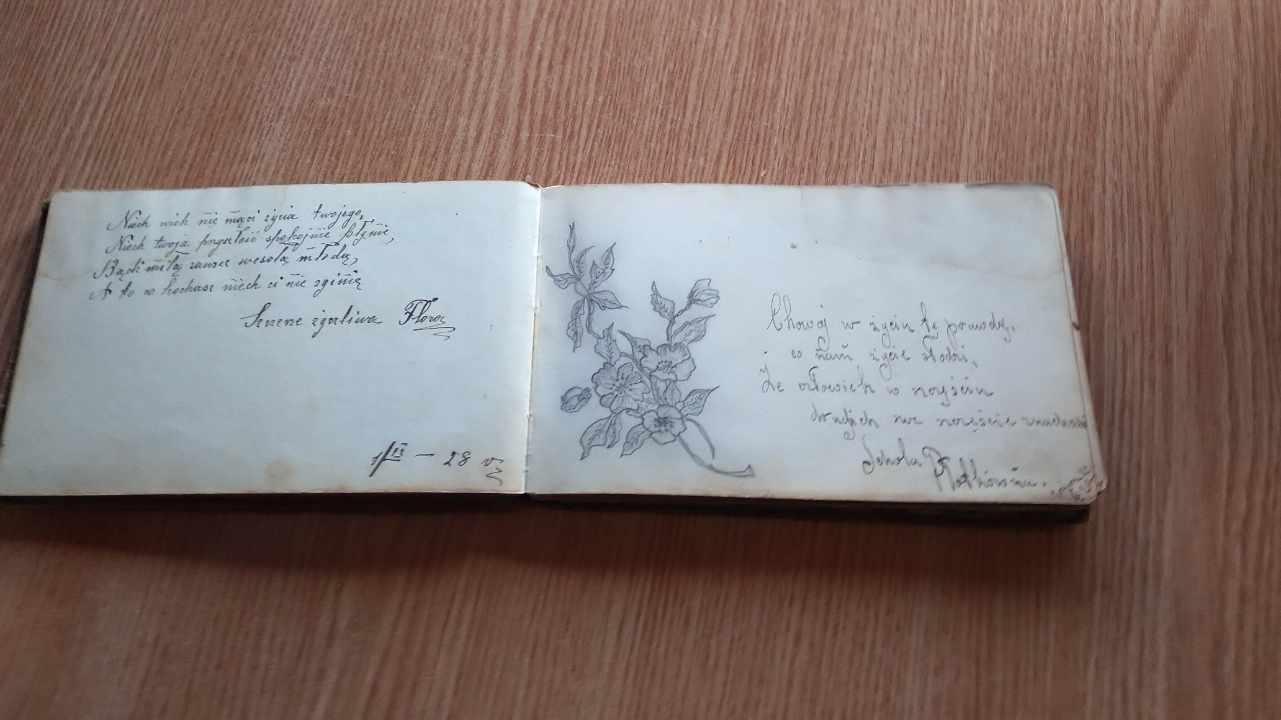 Niech nic nie mąci życia twojego,
Niech twoja przyszłość spokojnie płynie,
Bądź miłą zawsze wesołą młodą,
A to co kochasz niech ci nie zginie
Szczerze życzliwa Flora
1/II – 28 r
Chowaj w życiu tę prawdę,
co nam życie słodzi,
Że człowiek w szczęściu
drugich swe szczęście znachodzi